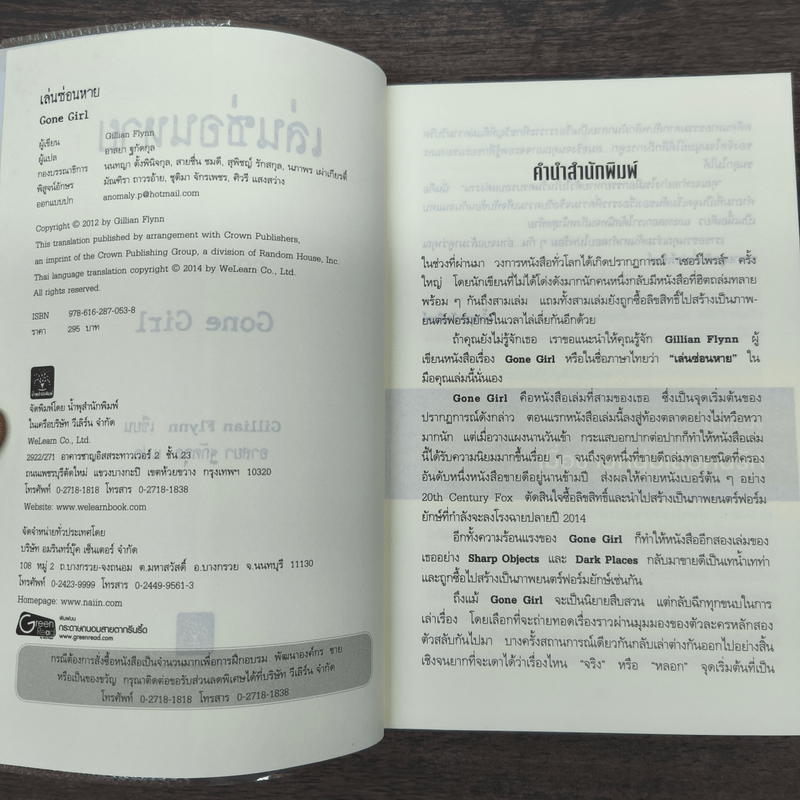 เล่นซ่อนหาย
Gone Girl
ผู้เขียน Gillian Flynn
ผู้แปล อาสยา ฐกัดกุล
กองบรรณาธิการ นนทญา ตั้งพินิจกุล, สายชื่น ชมดี, สุพิชญ์ รักสกุล, นภาพร เผ่าเกียรติ์
พิสูจน์อักษร มัณฑิรา ถาวรอ้าย, ชุติมา จักรเพชร, ศิวรี แสงสว่าง
ออกแบบปก anomaly.p@hotmail.com
Copyright © 2012 by Gillian Flynn
This translation published by arrangement with Crown Publishers,
an imprint of the Crown Publishing Group, a division of Random House, Inc.
Thai language translation copyright © 2014 by WeLearn Co., Ltd.
All rights reserved.
ISBN 978-616-287-053-8
ราคา 295 บาท
จัดพิมพ์โดย น้ำพุสำนักพิมพ์
ในเครือบริษัท วีเลิร์น จำกัด
WeLearn Co., Ltd.
2922/271 อาคารชาญอิสสระทาวเวอร์ 2 ชั้น 23
ถนนเพชรบุรีตัดใหม่ แขวงบางกะปิ เขตห้วยขวาง กรุงเทพฯ 10320
โทรศัพท์ 0-2718-1818 โทรสาร 0-2718-1838
Website: www.welearnbook.com
จัดจำหน่ายทั่วประเทศโดย
บริษัท อมรินทร์บุ๊ค เซ็นเตอร์ จำกัด
108 หมู่ 2 ถ.บางกรวย-จงถนอม ต.มหาสวัสดิ์ อ.บางกรวย จ.นนทบุรี 11130
โทรศัพท์ 0-2423-9999 โทรสาร 0-2449-9561-3
Homepage: www.naiin.com
Green read
พิมพ์บน
กระดาษถนอมสายตากรีนรี้ด
www.greenread.com
กรณีต้องการสั่งซื้อหนังสือเป็นจำนวนมากเพื่อการฝึกอบรม พัฒนาองค์กร ขาย
หรือเป็นของขวัญ กรุณาติดต่อขอรับส่วนลดพิเศษได้ที่บริษัท วีเลิร์น จำกัด
โทรศัพท์ 0-2718-1818 โทรสาร 0-2718-1838
คำนำสำนักพิมพ์
ในช่วงที่ผ่านมา วงการหนังสือทั่วโลกได้เกิดปรากฏการณ์ “เซอร์ไพรส์” ครั้ง
ใหญ่ โดยนักเขียนที่ไม่ได้โด่งดังมากนักคนหนึ่งกลับมีหนังสือที่ฮิตถล่มทลาย
พร้อม ๆ กันถึงสามเล่ม แถมทั้งสามเล่มยังถูกซื้อลิขสิทธิ์ไปสร้างเป็นภาพ-
ยนตร์ฟอร์มยักษ์ในเวลาไล่เลี่ยกันอีกด้วย
ถ้าคุณยังไม่รู้จักเธอ เราขอแนะนำให้คุณรู้จัก Gillian Flynn ผู้
เขียนหนังสือเรื่อง Gone Girl หรือในชื่อภาษาไทยว่า “เล่นซ่อนหาย” ใน
มือคุณเล่มนี้นั่นเอง
Gone Girl คือหนังสือเล่มที่สามของเธอ ซึ่งเป็นจุดเริ่มต้นของ
ปรากฏการณ์ดังกล่าว ตอนแรกหนังสือเล่มนี้ลงสู่ท้องตลาดอย่างไม่หวือหวา
มากนัก แต่เมื่อวางแผงนานวันเข้า กระแสบอกปากต่อปากก็ทำให้หนังสือเล่ม
นี้ได้รับความนิยมมากขึ้นเรื่อย ๆ จนถึงจุดหนึ่งที่ขายดีถล่มทลายชนิดที่ครอง
อันดับหนึ่งหนังสือขายดีอยู่นานข้ามปี ส่งผลให้ค่ายหนังเบอร์ต้น ๆ อย่าง
20th Century Fox ตัดสินใจซื้อลิขสิทธิ์และนำไปสร้างเป็นภาพยนตร์ฟอร์ม
ยักษ์ที่กำลังจะลงโรงฉายปลายปี 2014
อีกทั้งความร้อนแรงของ Gone Girl ก็ทำให้หนังสืออีกสองเล่มของ
เธออย่าง Sharp Objects และ Dark Places กลับมาขายดีเป็นเทน้ำเทท่า
และถูกซื้อไปสร้างเป็นภาพยนตร์ฟอร์มยักษ์เช่นกัน
ถึงแม้ Gone Girl จะเป็นนิยายสืบสวน แต่กลับฉีกทุกขนบในการ
เล่าเรื่อง โดยเลือกที่จะถ่ายทอดเรื่องราวผ่านมุมมองของตัวละครหลักสอง
ตัวสลับกันไปมา บางครั้งสถานการณ์เดียวกันกลับเล่าต่างกันออกไปอย่างสิ้น
เชิงจนยากที่จะเดาได้ว่าเรื่องไหน “จริง” หรือ “หลอก” จุดเริ่มต้นที่เป็น